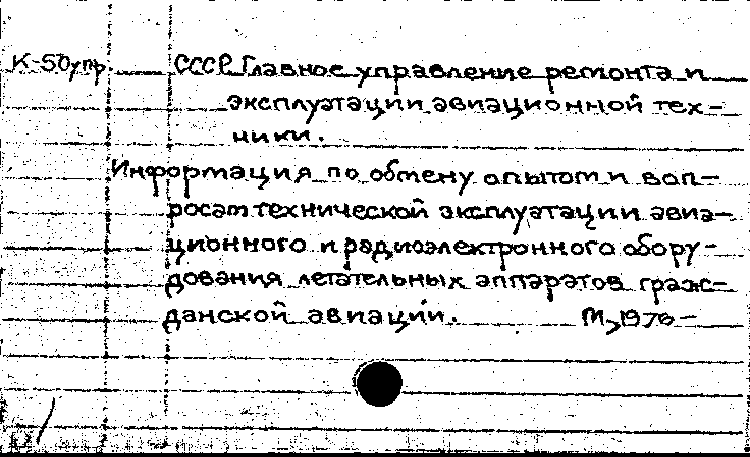 К-50упр. СССР. Главное управление ремонта и
эксплуатации авиационной тех-
ники.
Информация по обмену опытом и воп-
росам технической эксплуатации авиа-
ционного и радиоэлектронного обору-
дования летательных аппаратов граж-
данской авиации. М., 1976-